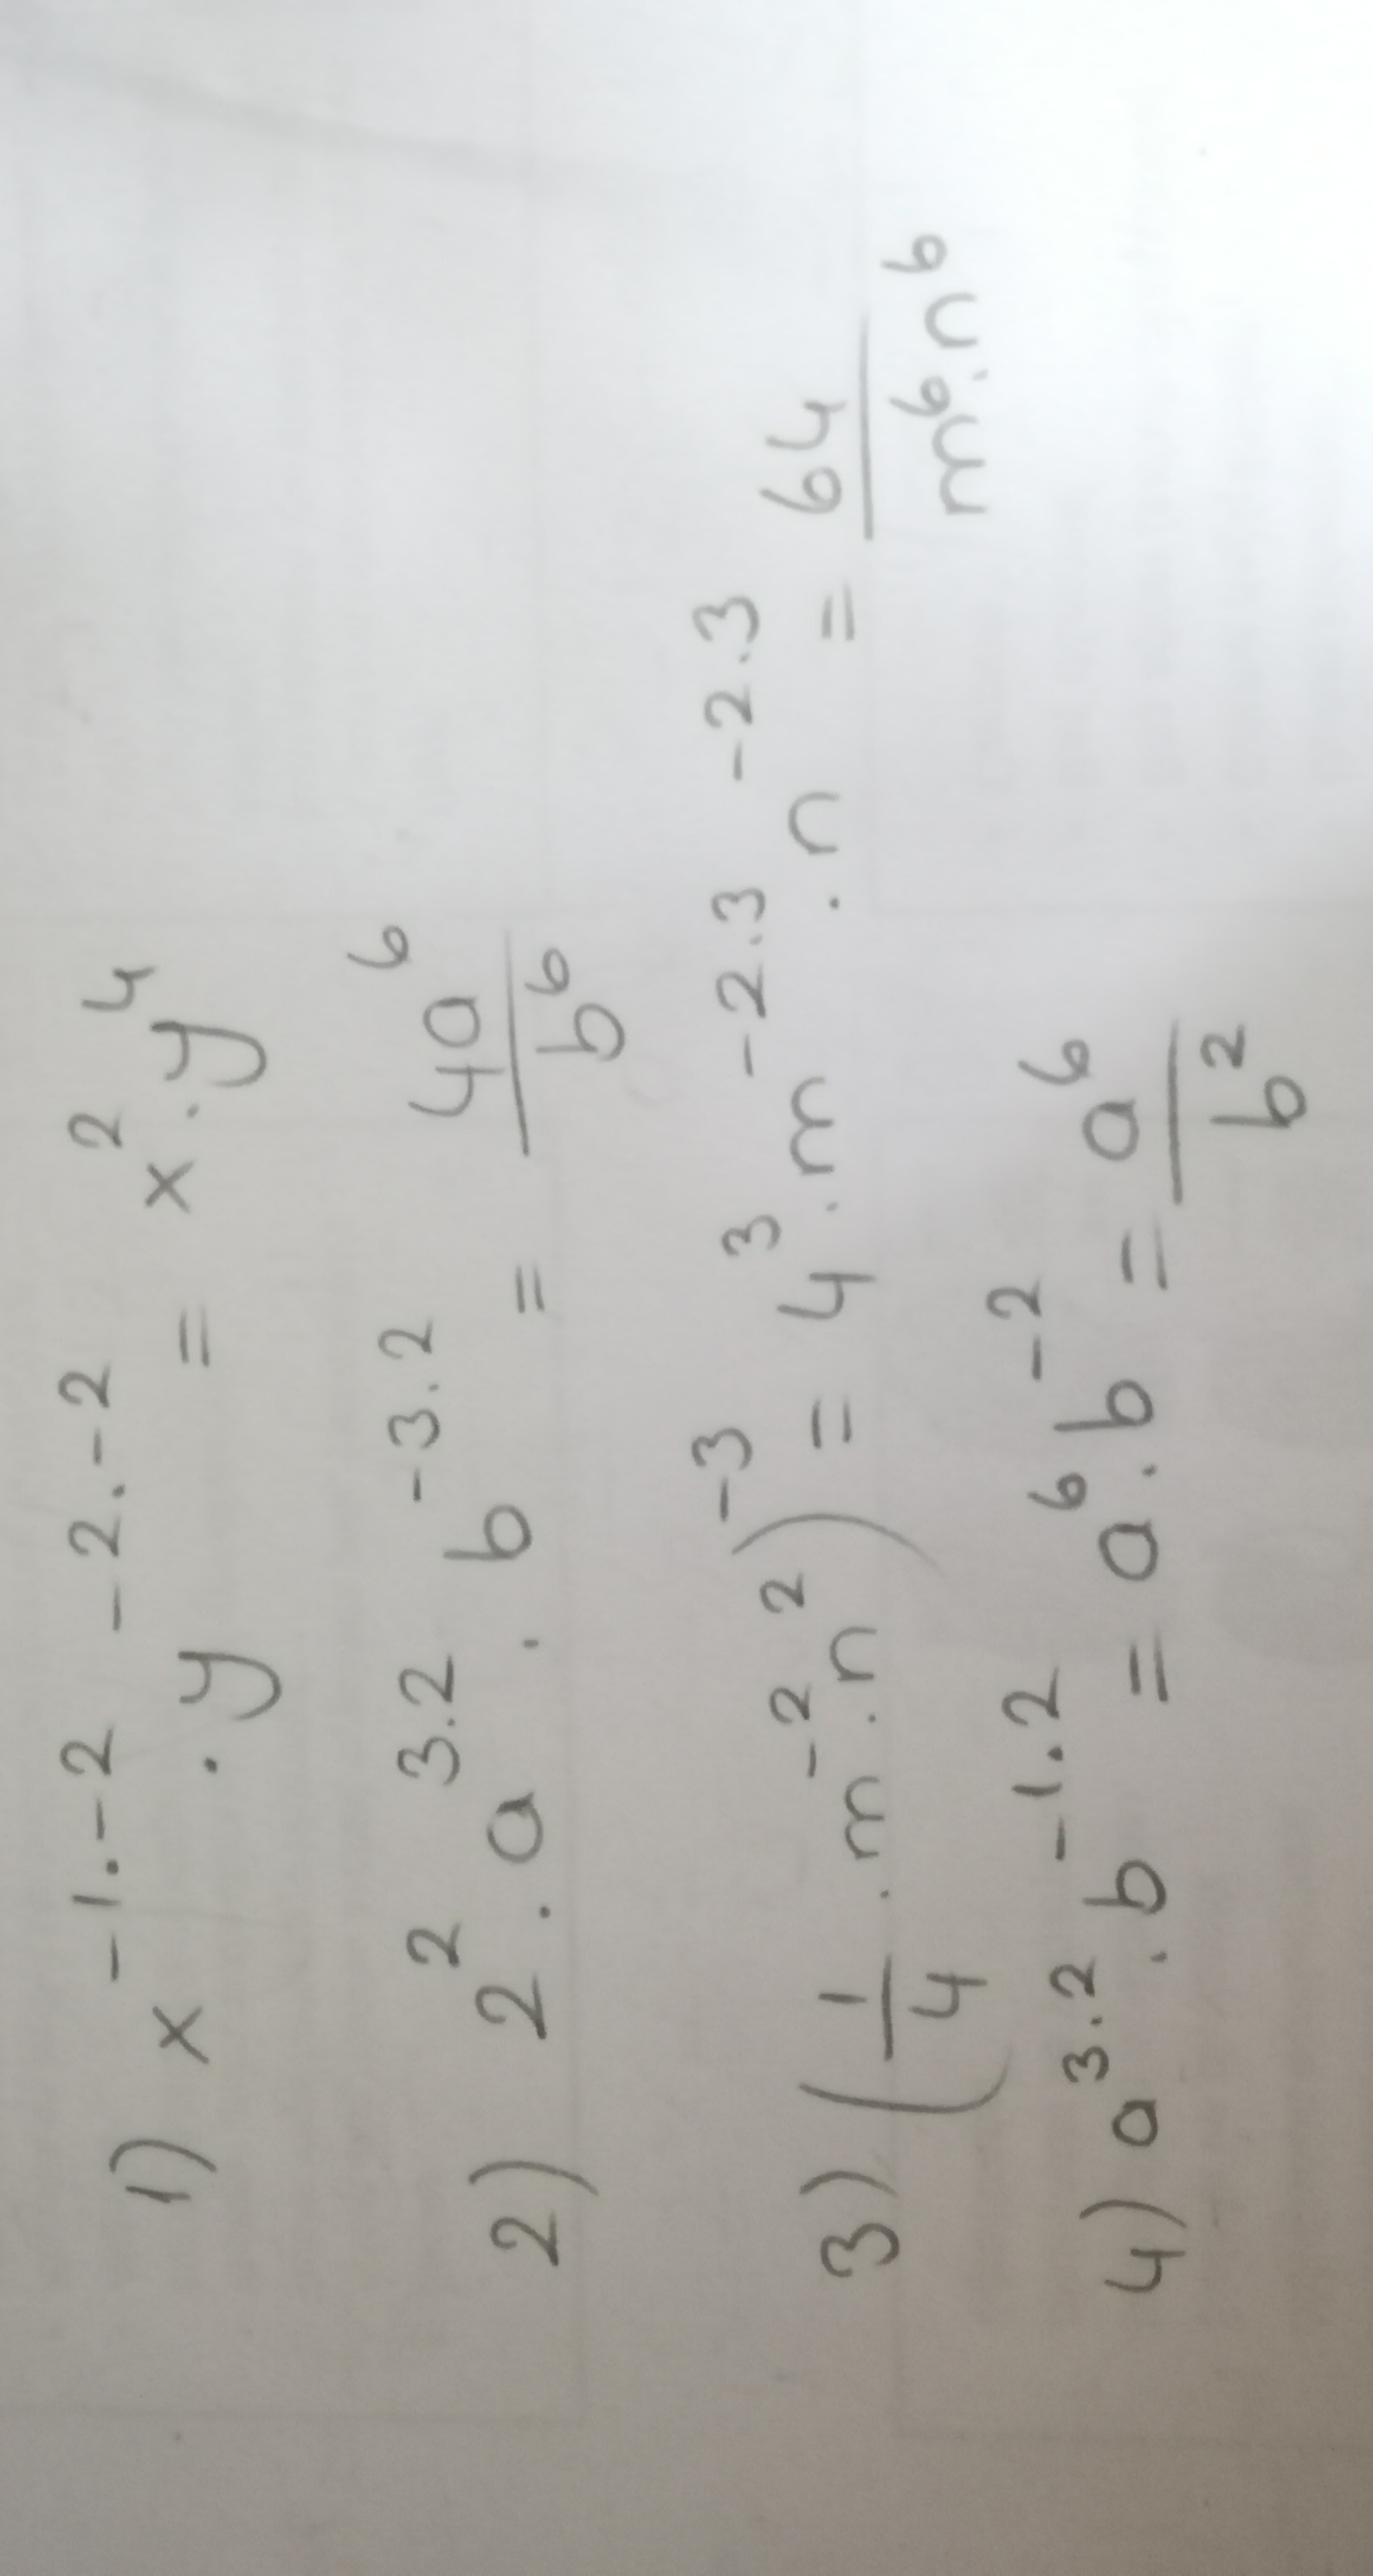 1) x^{-1.-2} . y^{-2.-2} = x^2 . y^4
2) 2^2 . a^{3.2} . b^{-3.2} = \frac{4a^6}{b^6}
3) (\frac{1}{4} . m^{-2} . n^2)^{-3} = 4^3 . m^{-2.3} . n^{-2.3} = \frac{64}{m^6 . n^6}
4) a^{3.2} . b^{-1.2} = a^6 . b^{-2} = \frac{a^6}{b^2}